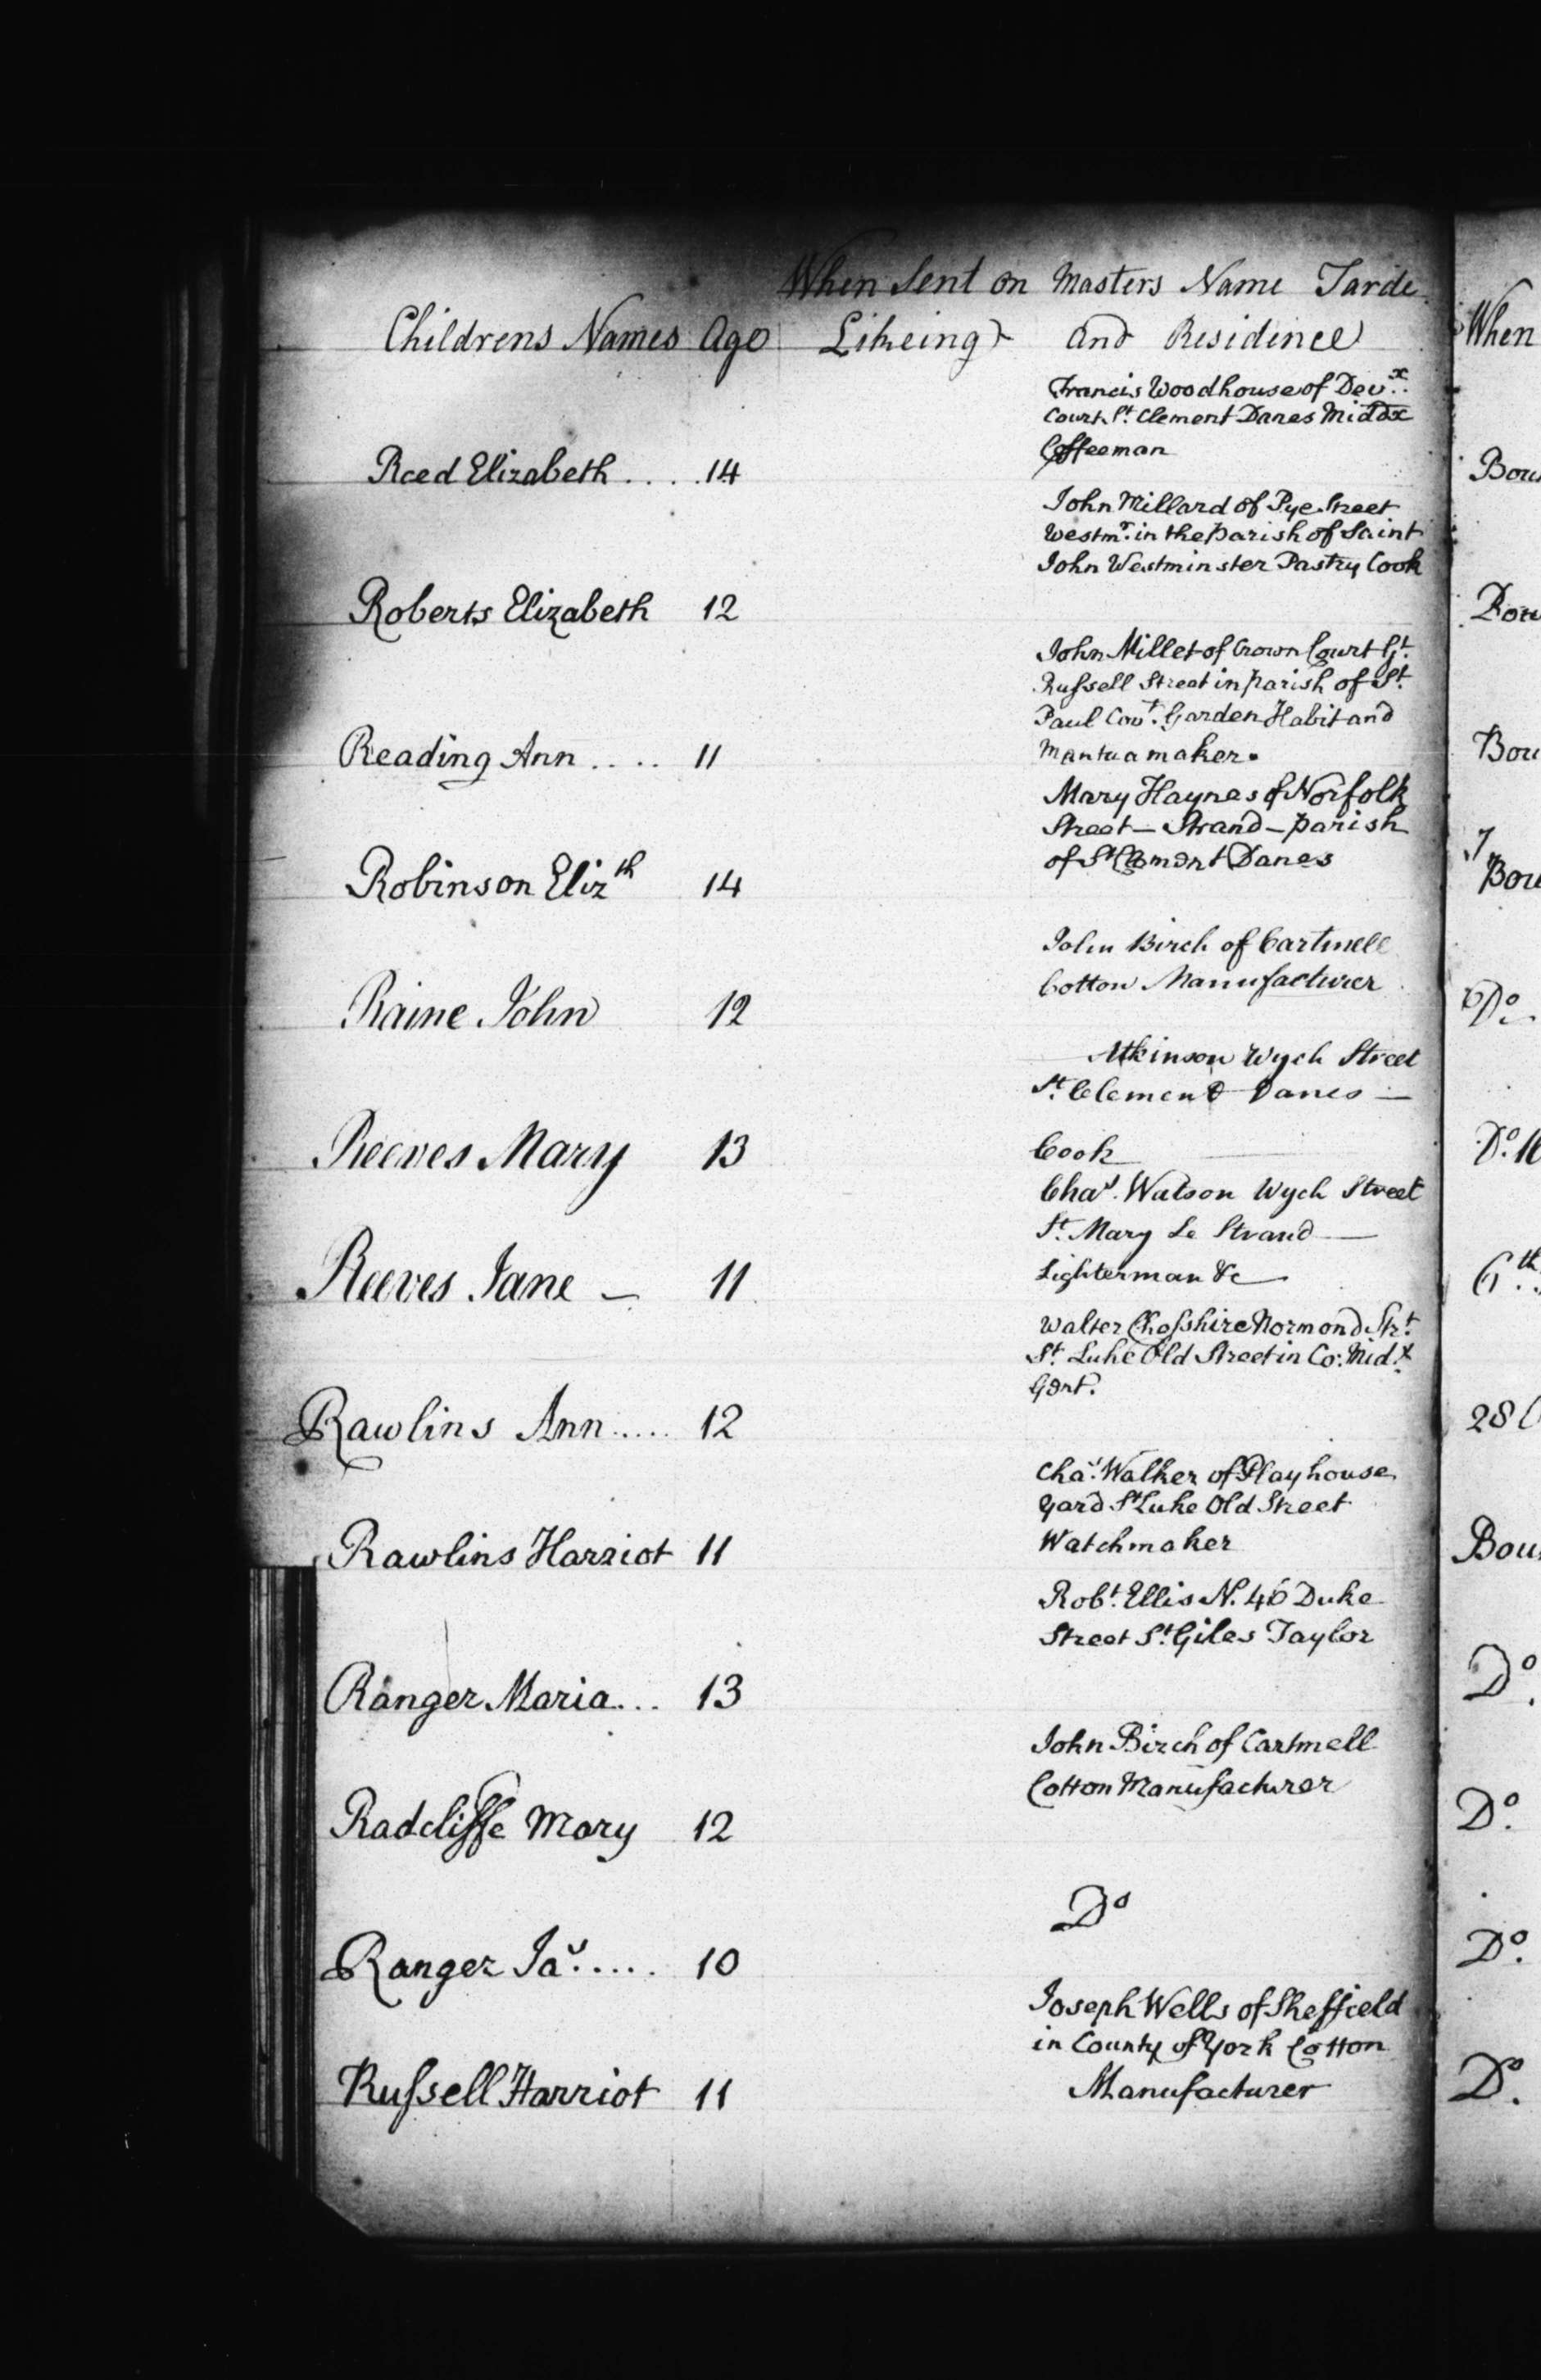 When Sent on Masters Name Tarde
Childrens Names Age Likeing and Residence
Francis Woodhouse of Dev.x
Court St. Clement Danes Middx
Coffeeman
Reed Elizabeth . . . . 14
John Millard of Pye Street
Westmr. in the parish of Saint
John Westminster Pastry Cook
Roberts Elizabeth 12
John Millet of Crown Court Gt.
Russell Street in parish of St.
Paul Covt. Garden Habit and
Mantua maker.
Reading Ann . . . . 11
Mary Haynes of Norfolk
Street — Strand — parish
of St Clement Danes
Robinson Elizth 14
John Birch of Cartmell
Cotton Manufacturer
Raine John 12
Atkinson Wych Street
St. Clement Danes —
Cook
Reeves Mary 13
Chas. Watson Wych Street
St. Mary Le Strand —
Lighterman &c —
Reeves Jane — 11
Walter Normond Strt.
St. Luke Old Street in Co: Midx.
Gent.
Rawlins Ann . . . . 12
Chas. Walker of Playhouse
Yard St Luke Old Street
Watchmaker
Rawlins Harriot 11
Robt. Ellis N. 46 Duke
Street St. Giles Taylor
Ranger Maria . . . 13
John Birch of Cartmell
Cotton Manufacturer
Radcliffe Mary 12
Do
Ranger Jas. . . . . 10
Joseph Wells of Sheffield
in County of York Cotton
Manufacturer
Russell Harriot 11
When
Do
Do.
6th.
28
Do.
Do.
Do.
Do.